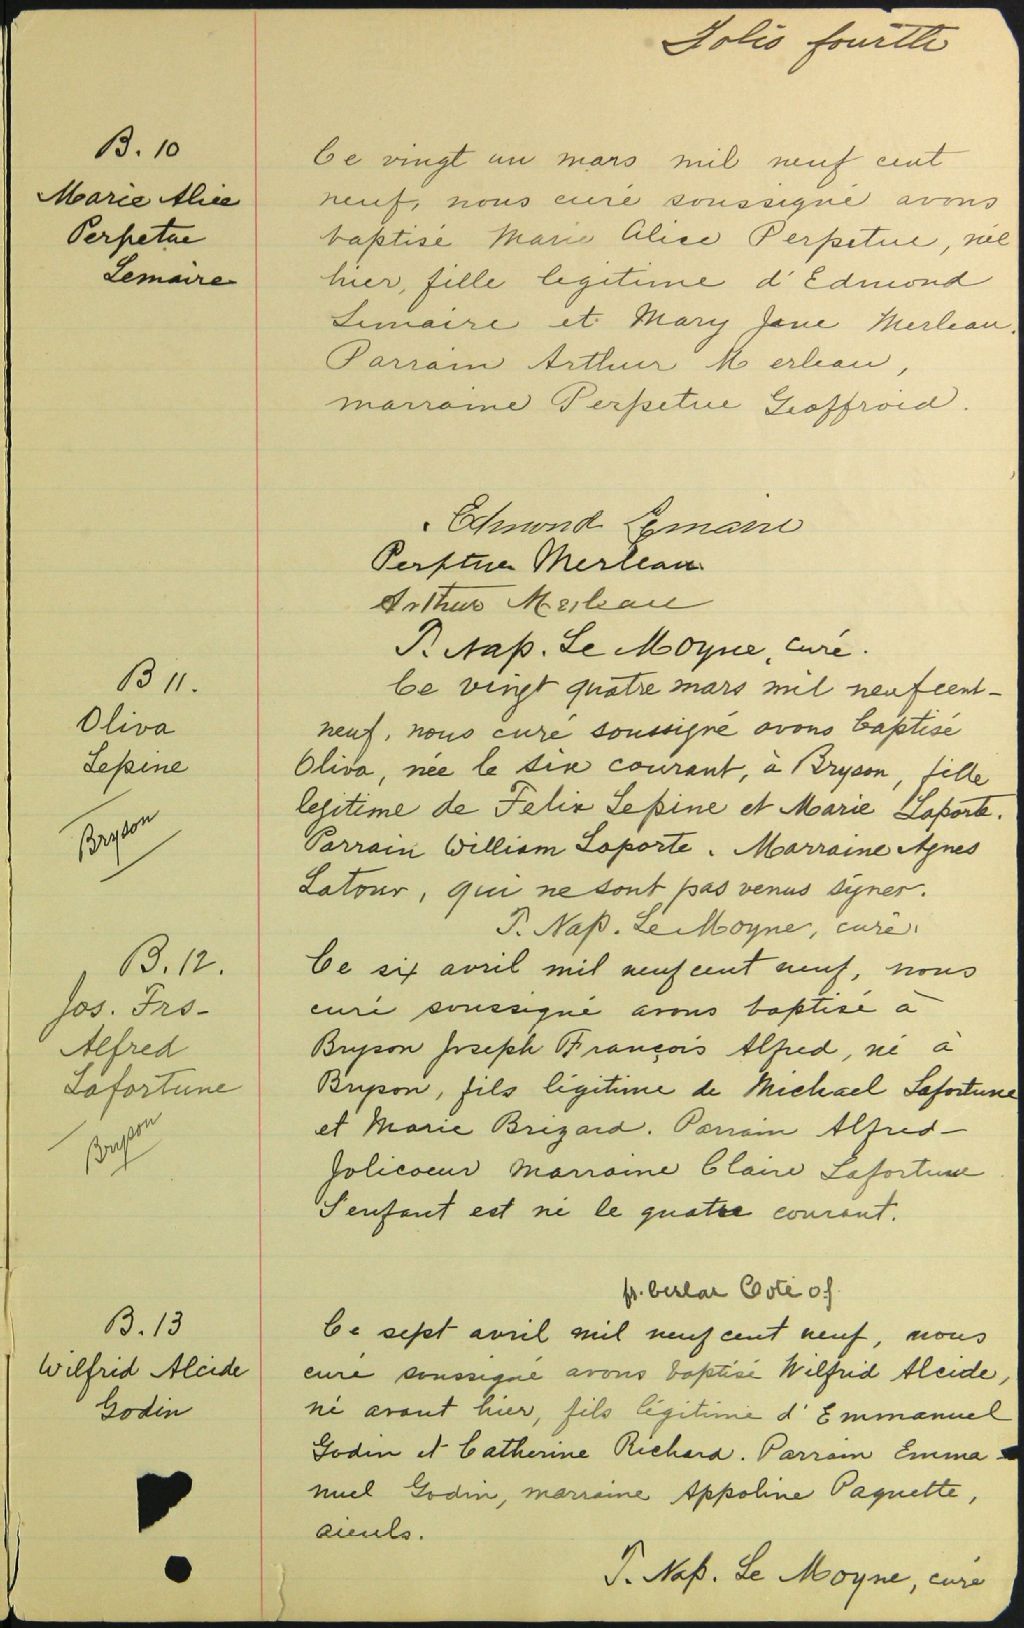 Folio fourth
B. 10
Marie Alice
Perpetue
Lemaire
Ce vingt un mars mil neuf cent
neuf, nous curé soussigné avons
baptisé Marie Alice Perpetue, née
hier, fille legitime d'Edmond
Lemaire et Mary Jane Merleau.
Parrain Arthur Merleau,
marraine Perpetue Geoffroid.
Edmond Lemaire
Perptue Merleau
Arthur Merleau
T. Nap. Le Moyne, curé.
B 11.
Oliva
Lepine
Bryson
Ce vingt quatre mars mil neuf cent-
neuf, nous curé soussigné avons baptisé
Oliva, née le six courant, à Bryson, fille
legitime de Felix Lepine et Marie Laporte.
Parrain William Laporte. Marraine Agnes
Latour, qui ne sont pas venus signer.
T. Nap. Le Moyne, curé.
B. 12.
Jos. Frs-
Alfred
Lafortune
Bryson
Ce six avril mil neuf cent neuf, nous
curé soussigné avons baptisé à
Bryson Joseph François Alfred, né à
Bryson, fils légitime de Michael Lafortune
et Marie Brizard. Parrain Alfred-
Jolicoeur marraine Claire Lafortune
L'enfant est né le quatre courant.
fr. Coté
B. 13
Wilfrid Alcide
Godin
Ce sept avril mil neuf cent neuf, nous
curé soussigné avons baptisé Wilfrid Alcide,
né avant hier, fils légitime d'Emmanuel
Godin et Catherine Richard. Parrain Emma-
nuel Godin, marraine Appoline Paquette,
aieuls.
T. Nap. Le Moyne, curé